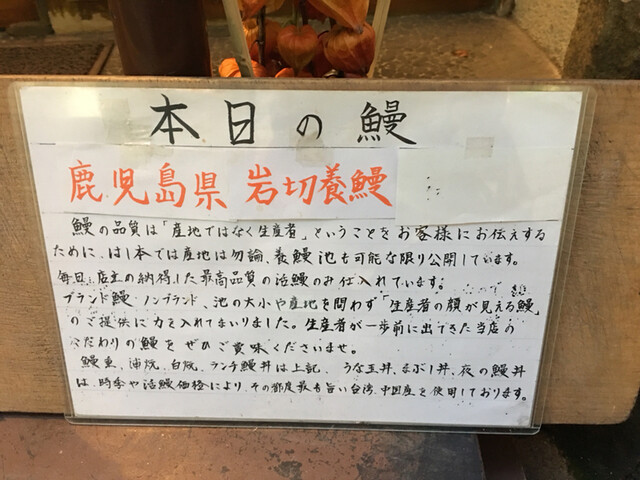 本日の鰻
鹿児島県 岩切養鰻
鰻の品質は「産地ではなく生産者」ということをお客様にお伝えする
ために、はし本では産地は勿論、養鰻池も可能な限り公開しています。
毎日、店主の納得した最高品質の活鰻のみ仕入れています。
ブランド鰻、ノンブランド、池の大小や産地を問わず「生産者の顔が見える鰻」
のご提供に力を入れてまいりました。生産者が一歩前に出てきた当店の
こだわりの鰻をぜひご賞味くださいませ。
鰻重、蒲焼、白焼、ランチ鰻丼は上記、うな玉丼、まぶし丼、夜の鰻丼
は、時季や活鰻価格により、その都度最も旨い台湾、中国産を使用しております。